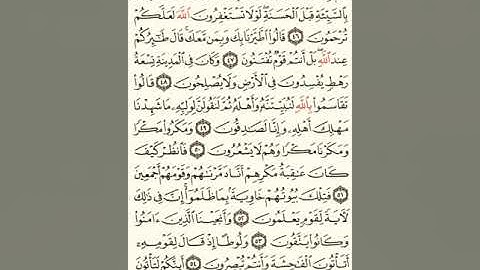 بِالسَّيِّئَةِ قَبْلَ الْحَسَنَةِ لَوْلَا تَسْتَغْفِرُونَ اللَّهَ لَعَلَّكُمْ
تُرْحَمُونَ ٤٦ قَالُوا اطَّيَّرْنَا بِكَ وَبِمَن مَّعَكَ قَالَ طَائِرُكُمْ
عِندَ اللَّهِ بَلْ أَنتُمْ قَوْمٌ تُفْتَنُونَ ٤٧ وَكَانَ فِي الْمَدِينَةِ تِسْعَةُ
رَهْطٍ يُفْسِدُونَ فِي الْأَرْضِ وَلَا يُصْلِحُونَ ٤٨ قَالُوا
تَقَاسَمُوا بِاللَّهِ لَنُبَيِّتَنَّهُ وَأَهْلَهُ ثُمَّ لَنَقُولَنَّ لِوَلِيِّهِ مَا شَهِدْنَا
مَهْلِكَ أَهْلِهِ وَإِنَّا لَصَادِقُونَ ٤٩ وَمَكَرُوا مَكْرًا
وَمَكَرْنَا مَكْرًا وَهُمْ لَا يَشْعُرُونَ ٥٠ فَانظُرْ كَيْفَ
كَانَ عَاقِبَةُ مَكْرِهِمْ أَنَّا دَمَّرْنَاهُمْ وَقَوْمَهُمْ أَجْمَعِينَ
٥١ فَتِلْكَ بُيُوتُهُمْ خَاوِيَةً بِمَا ظَلَمُوا إِنَّ فِي ذَٰلِكَ
لَآيَةً لِّقَوْمٍ يَعْلَمُونَ ٥٢ وَأَنجَيْنَا الَّذِينَ آمَنُوا
وَكَانُوا يَتَّقُونَ ٥٣ وَلُوطًا إِذْ قَالَ لِقَوْمِهِ
أَتَأْتُونَ الْفَاحِشَةَ وَأَنتُمْ تُبْصِرُونَ ٥٤ أَئِنَّكُمْ لَتَأْتُونَ